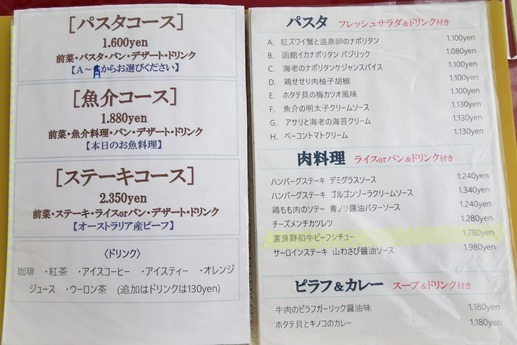 [パスタコース]
1.600yen
前菜・パスタ・パン・デザート・ドリンク
【A～ からお選びください】
[魚介コース]
1.880yen
前菜・魚介料理・パン・デザート・ドリンク
【本日のお魚料理】
[ステーキコース]
2.350yen
前菜・ステーキ・ライスorパン・デザート・ドリンク
【オーストラリア産ビーフ】
〈ドリンク〉
珈琲 ・紅茶 ・アイスコーヒー ・アイスティー ・オレンジ
ジュース ・ウーロン茶 (追加はドリンクは130yen)
パスタ フレッシュサラダ&ドリンク付き
A. 紅ズワイ蟹と温泉卵のナポリタン 1.100yen
B. 函館イカナポリタン バジリック 1.080yen
C. 海老のナポリタンケジャンスパイス 1.100yen
D. 鶏せせり肉柚子胡椒 1.100yen
E. ホタテ貝の梅カツオ風味 1.100yen
F. 魚介の明太子クリームソース 1.130yen
G. アサリと海老の海苔クリーム 1.130yen
H. ベーコントマトクリーム 1.130yen
肉料理 ライスorパン&ドリンク付き
ハンバーグステーキ デミグラスソース 1.240yen
ハンバーグステーキ ゴルゴンゾーラクリームソース 1.340yen
鶏もも肉のソテー 青ノリ醤油バターソース 1.240yen
チーズメンチカツレツ 1.280yen
富良野和牛ビーフシチュー 1.780yen
サーロインステーキ 山わさび醤油ソース 1.980yen
ピラフ&カレー スープ&ドリンク付き
牛肉のピラフガーリック醤油味 1.180yen
ホタテ貝とキノコのカレー 1.180yen